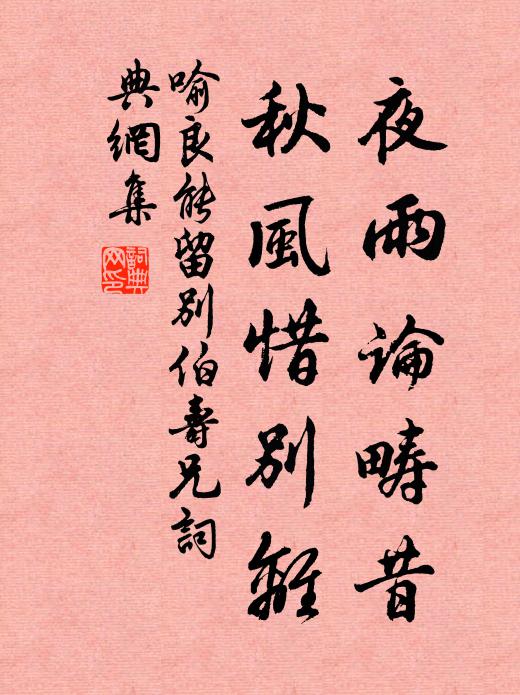 夜雨論疇昔
秋風惜別離
喻良能留別伯壽兄詞
典網集
詞典
网印